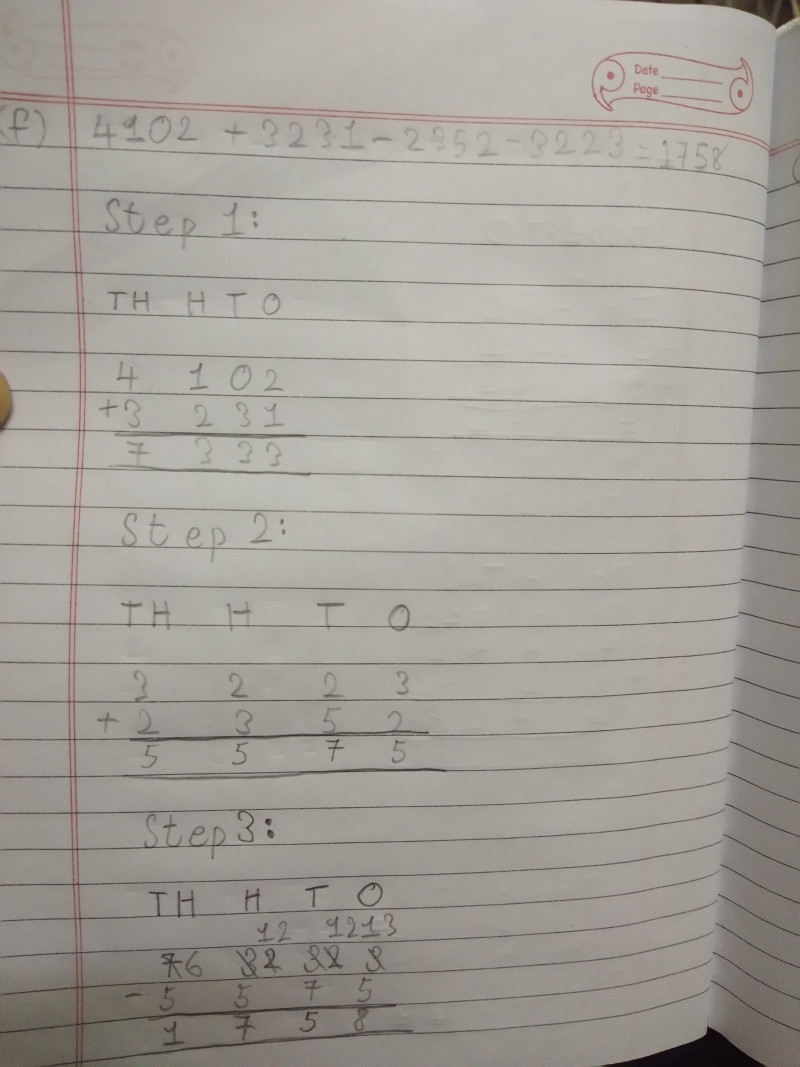 Date
Page
(f) 4102 + 3231 - 2352 - 3223 = 1758
Step 1:
TH H T O
4 1 0 2
+3 2 3 1
7 3 3 3
Step 2:
TH H T O
3 2 2 3
+ 2 3 5 2
5 5 7 5
Step 3:
TH H T O
12 12 13
7 6 3 2 3 2 3
- 5 5 7 5
1 7 5 8